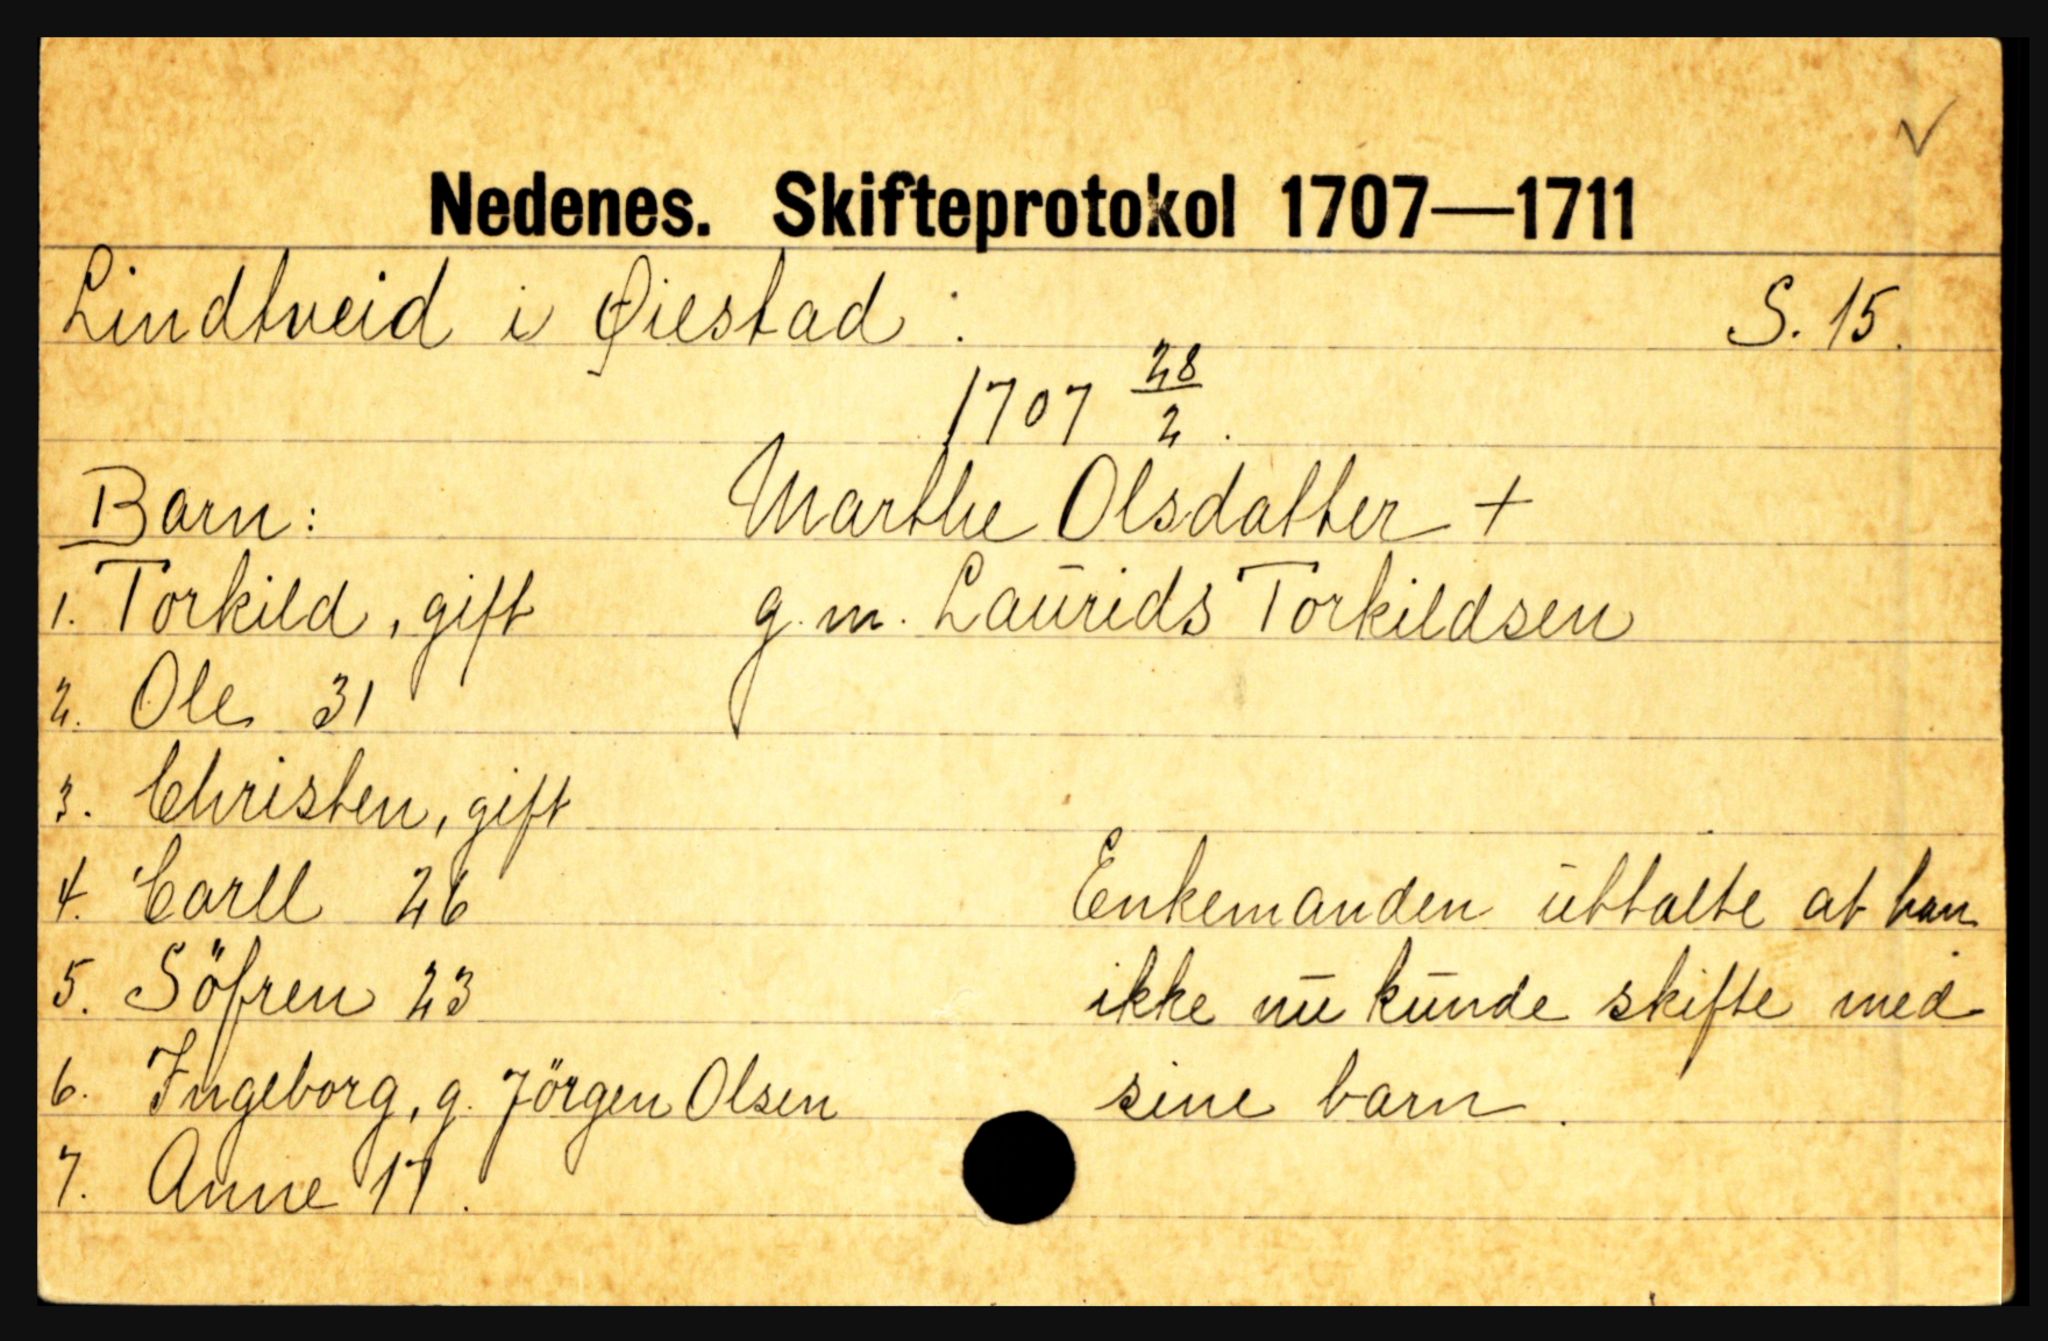 Nedenes. Skifteprotokol 1707—1711
Lindtveid i Øiestad. S. 15.
1707 28/2.
Barn: Marthe Olsdatter +
1. Torkild, gift g. m. Laurids Torkildsen
2. Ole 31
3. Christen, gift
4. Carll 26 Enkemanden uttalte at han
5. Söfren 23 ikke nu kunde skifte med
6. Ingeborg, g. Jörgen Olsen sine barn.
7. Anne 17.